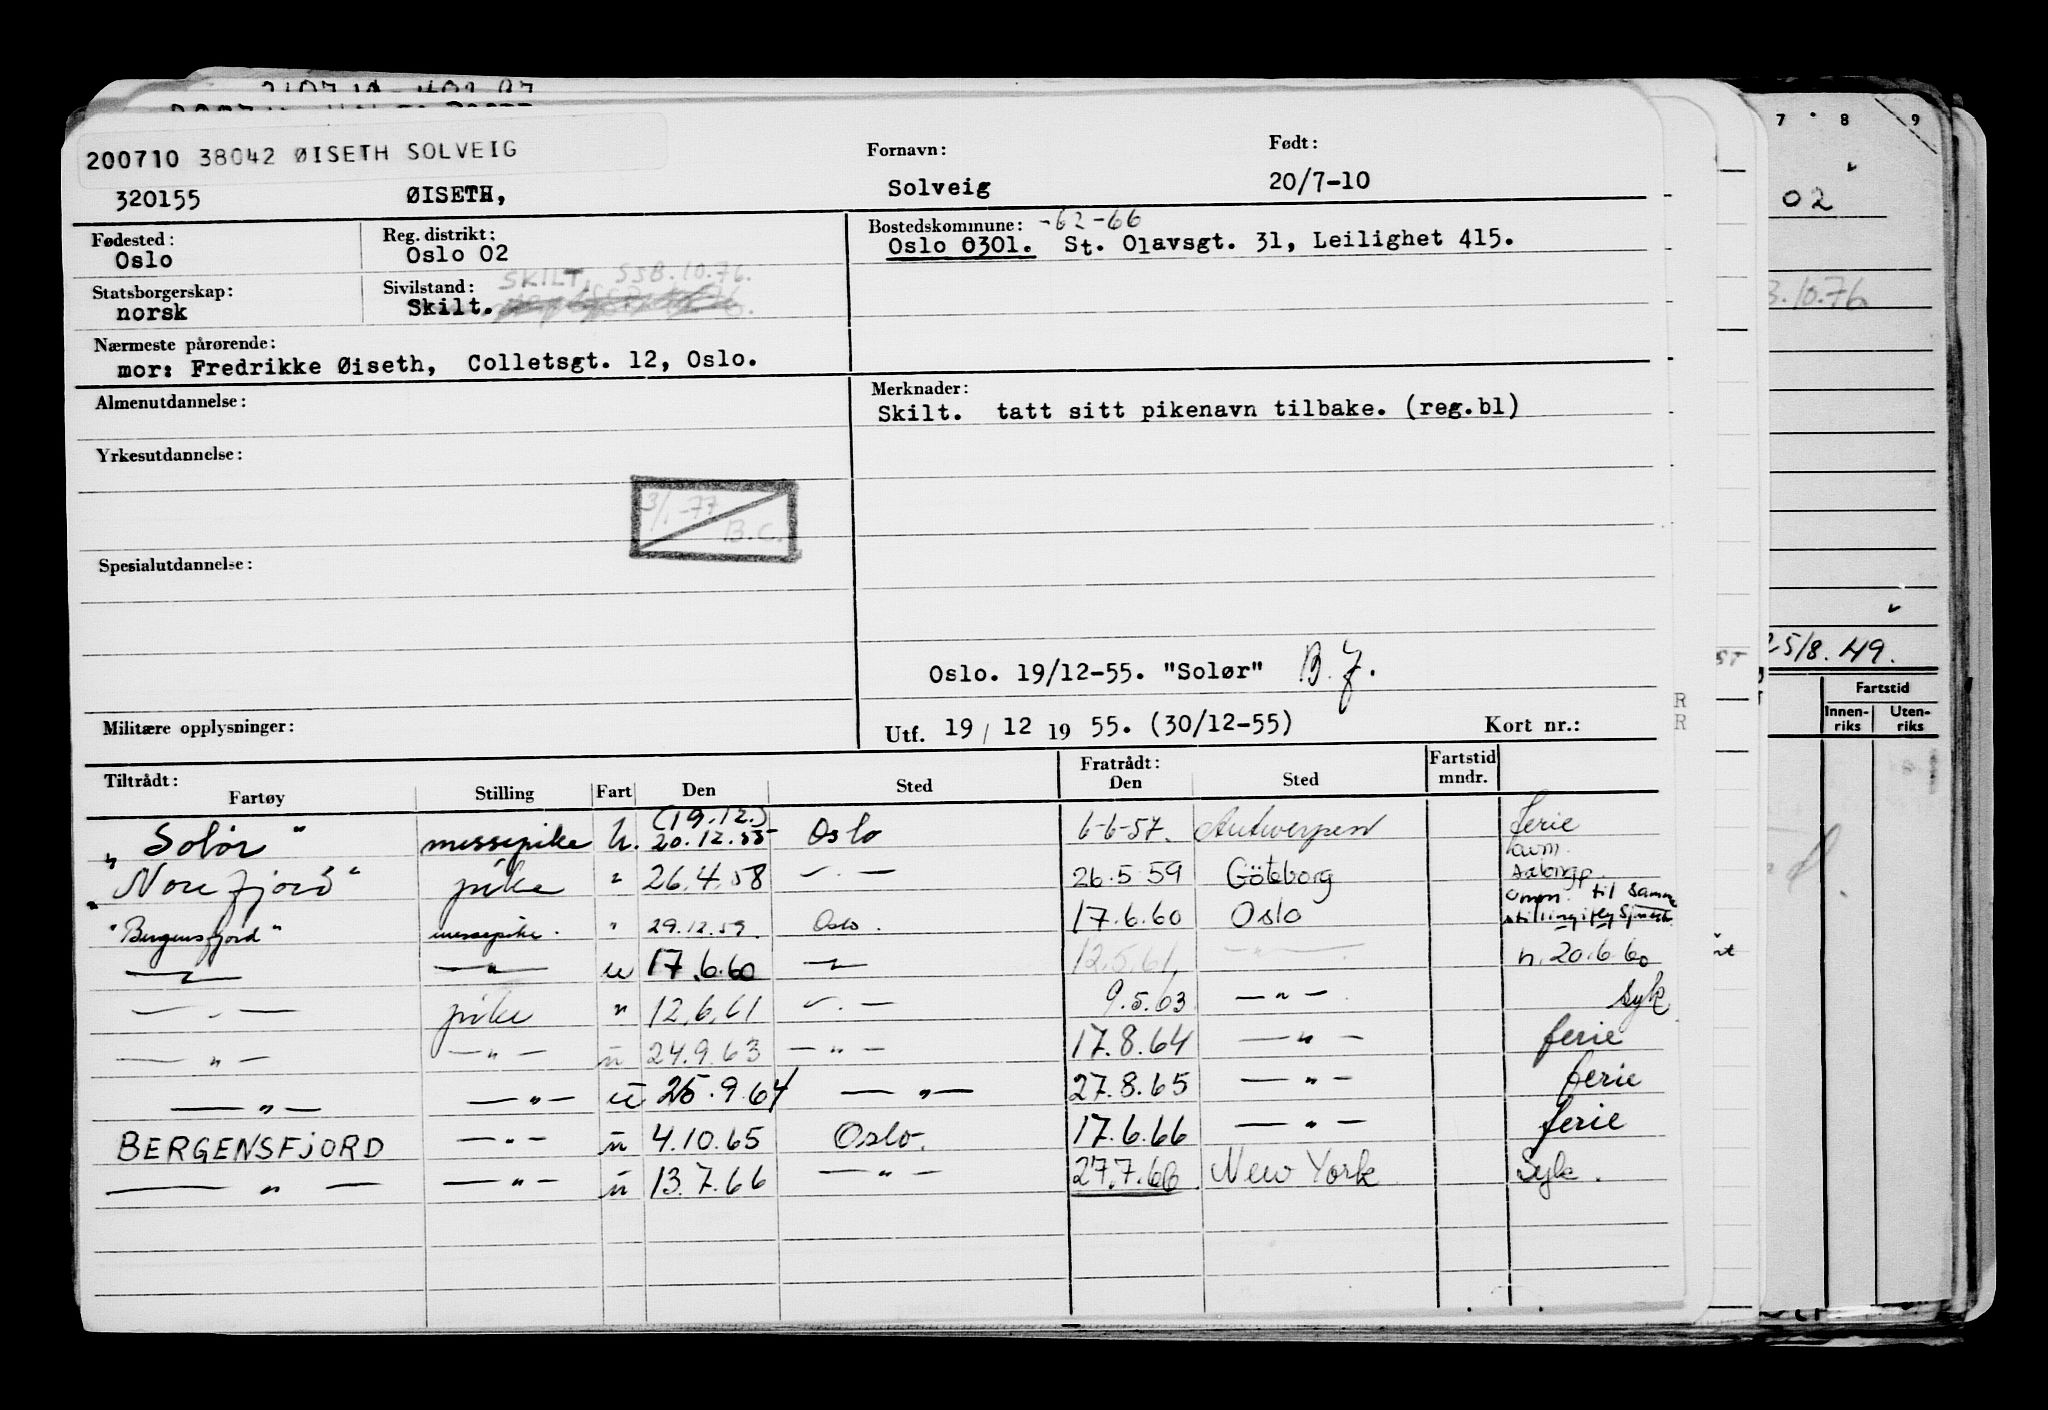 200710 38042 ØISETH SOLVEIG
320155 ØISETH,
Fornavn: Solveig
Født: 20/7-10
Fødested: Oslo
Reg. distrikt: Oslo 02
Bostedskommune: -62-66
Oslo 0301. St. Olavsgt. 31, Leilighet 415.
Statsborgerskap: norsk
Sivilstand: Skilt. SKILT, SSB.10.76.
Nærmeste pårørende:
mor: Fredrikke Øiseth, Colletsgt. 12, Oslo.
Almenutdannelse:
Merknader:
Skilt. tatt sitt pikenavn tilbake. (reg.bl)
Yrkesutdannelse:
3/1-77 B.C.
Spesialutdannelse:
Oslo. 19/12-55. "Solør" B.J.
Militære opplysninger:
Utf. 19 / 12 19 55. (30/12-55) Kort nr.:
Tiltrådt: Fratrådt: Fartstid
Fartøy Stilling Fart Den Sted Den Sted mndr.
(19.12.)
"Solør" messepike U. 20.12.55 Oslo 6-6-57. Antwerpen ferie
"Norefjord" pike " 26.4.58 — . — 26.5.59 Göteborg
"Bergensfjord" messepike. " 29.12.59. Oslo. 17.6.60 Oslo omm. til samme
— " — — " — u 17.6.60 — " — 12.5.61. — " — n. 20.6.60
— " — pike " 12.6.61 — . — 9.5.63 — " — syk
— " — — " — u 24.9.63 — " — 17.8.64 — " — ferie
— " — — " — u 25.9.64 — " — 27.8.65 — " — ferie
BERGENSFJORD — " — u 4.10.65 Oslo. 17.6.66 — " — ferie
— " — — " — u 13.7.66 — " — 27.7.66. New York Syk.
7 8 9
02
3.10.76
25/8.49.
Fartstid
Innen-riks Uten-riks